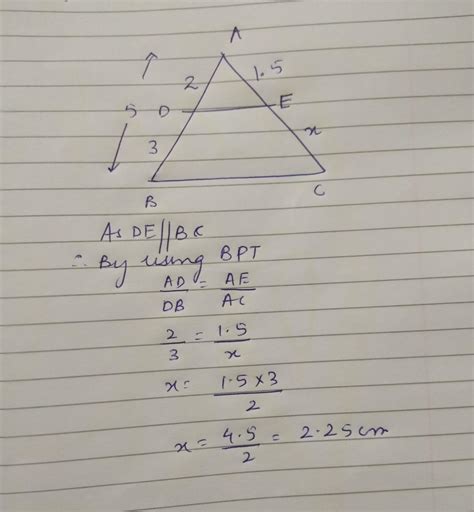 A
2
1.5
5
D
E
3
x
B
C
As DE || BC
∴ By using BPT
AD/DB = AE/AC
2/3 = 1.5/x
x = 1.5 × 3/2
x = 4.5/2 = 2.25 cm